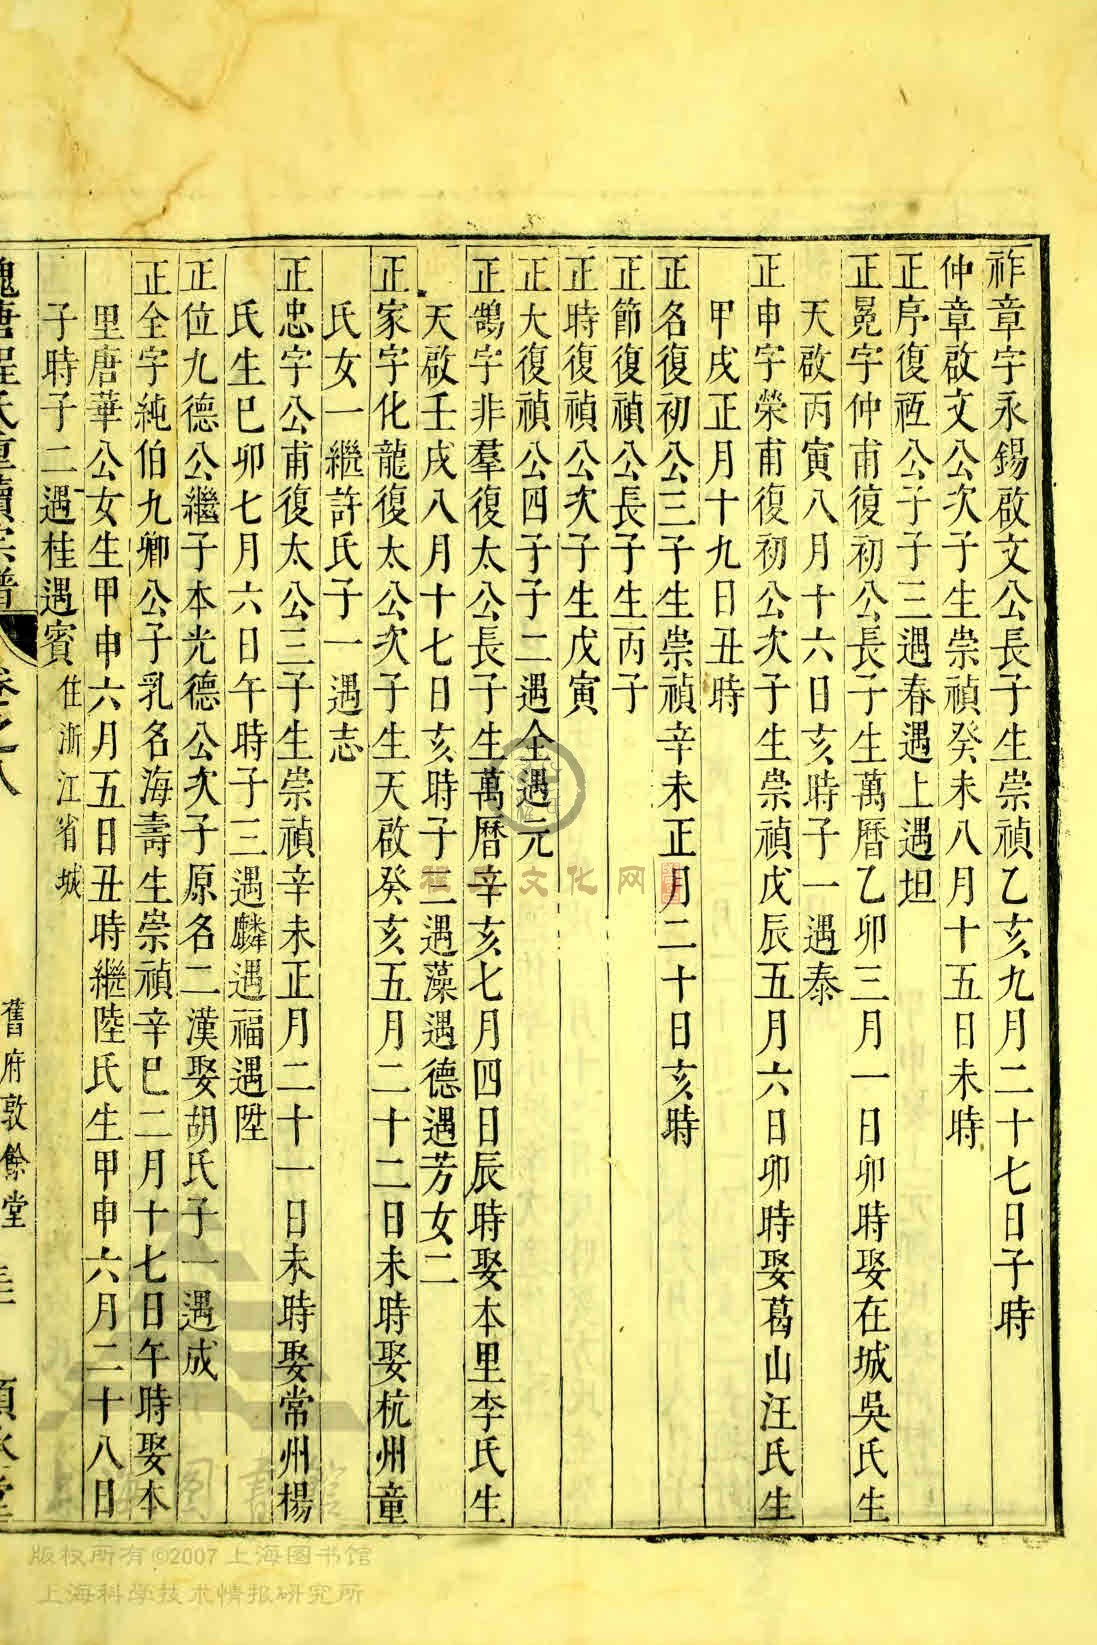 祚章字永錫啟文公長子生崇禎乙亥九月二十七日子時
仲章啟文公次子生崇禎癸未八月十五日未時
正序復祗公子子三遇春遇上遇坦
正冕字仲甫復初公長子生萬曆乙卯三月一日卯時娶在城吳氏生
天啟丙寅八月十六日亥時子一遇泰
正申字榮甫復初公次子生崇禎戊辰五月六日卯時娶葛山汪氏生
甲戌正月十九日丑時
正名復初公三子生崇禎辛未正月二十日亥時
正節復禎公長子生丙子
正時復禎公次子生戊寅
正大復禎公四子子二遇全遇元
正鵠字非羣復太公長子生萬曆辛亥七月四日辰時娶本里李氏生
天啟壬戌八月十七日亥時子三遇藻遇德遇芳女二
正家字化龍復太公次子生天啟癸亥五月二十二日未時娶杭州童
氏女一繼許氏子一遇志
正忠字公甫復太公三子生崇禎辛未正月二十一日未時娶常州楊
氏生巳卯七月六日午時子三遇麟遇福遇陞
正位九德公繼子本光德公次子原名二漢娶胡氏子一遇成
正全字純伯九卿公子乳名海壽生崇禎辛巳二月十七日午時娶本
里唐華公女生甲申六月五日丑時繼陸氏生甲申六月二十八日
子時子二遇桂遇賓 住浙江省城
槐塘程氏重續宗譜 卷之八 舊府敦餘堂
雅昌文化网
上海图书馆
版权所有©2007上海图书馆
上海科学技术情报研究所